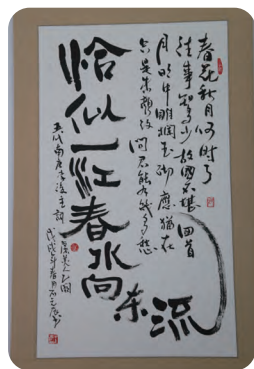 春花秋月何时了
往事知多少故國不堪回首
月明中雕阑玉砌應猶在
只是朱颜改问君能有幾多愁
恰似一江春水向东流
五代南唐李後主詞
虞美人
戊戌年春月